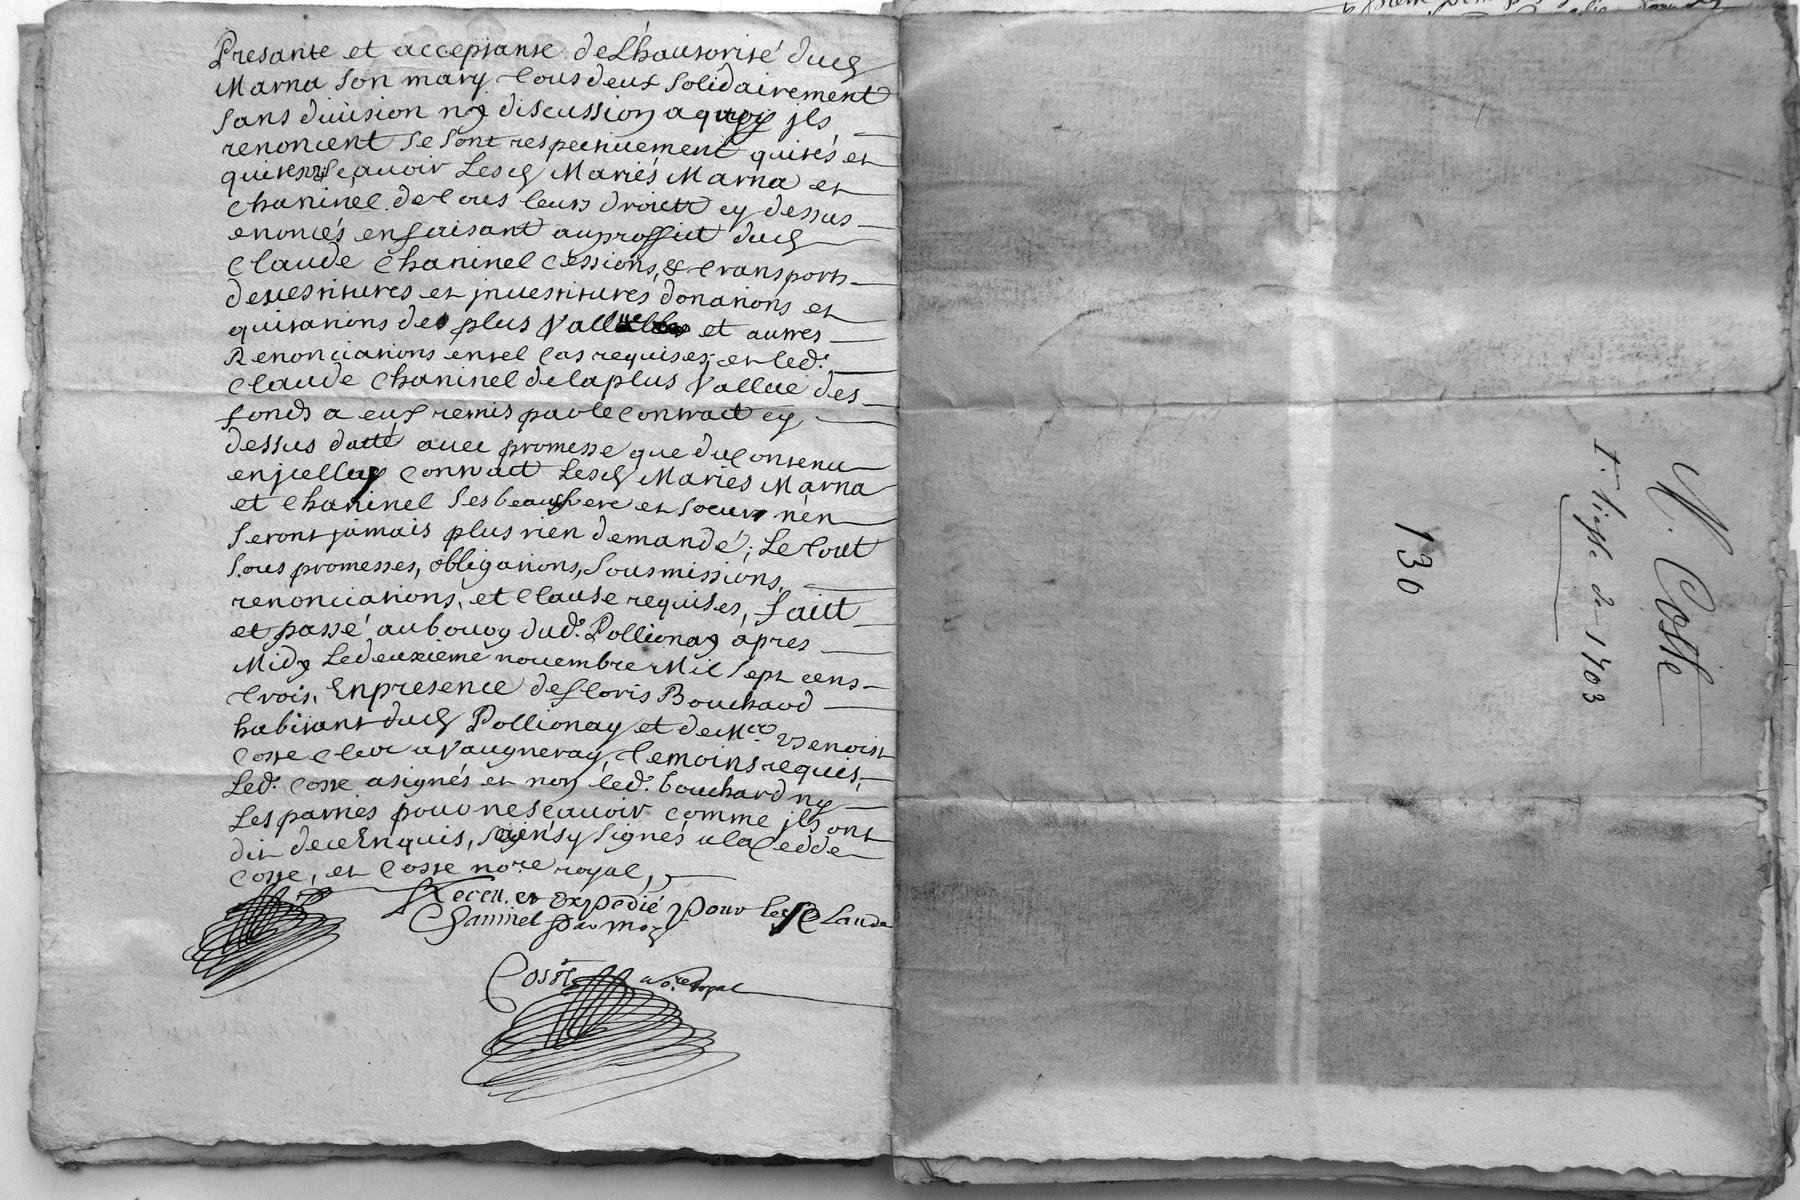 Presante et acceptante de Lhautorisé dud
Marna son mary tous deux solidairement
sans diuision ny discussion a quoy jls
renoncent se sont respectiuement quités et
quitent sçauoir Lesd Mariés Marna et
chaninel de tous leurs droitt cy dessus
enoncés en faisant au proffict dud
Claude Chaninel céssions, & transports
deuestitures et jnuestitures donations et
quitations des plus Vallue et autres
Renonciations en tel cas requises; et led.
Claude Chaninel de la plus Vallue des
fonds a eux remis par le contract cy
dessus datté auec promesse que du contenu
en jcelluy contract Lesd Mariés Marna
et Chaninel ses beaufrere et soeur n'én
seront jamais plus rien demandé; Le tout
sous promesses, obligations, sousmissions,
renonciations, et clause requises, faict
et passé au bourg dud. Pollionay apres
Midy Le deuxieme nouembre Mil sept cens
trois, En presence de floris Bouchard
habitant dud Pollionay et de Mre Benoist
Coste clerc a Vaugneray, temoins requis,
Led. Coste a signés et non led. bouchard ny
Les parties pour ne sçauoir comme jls ont
dit de ce Enquis, s ainsy signés a la Cedde
Coste, et Coste nore royal,
Receu et expedié pour led Claude
Chaninel par moy
Coste nore royal
M. Coste
1re liasse de 1703
130